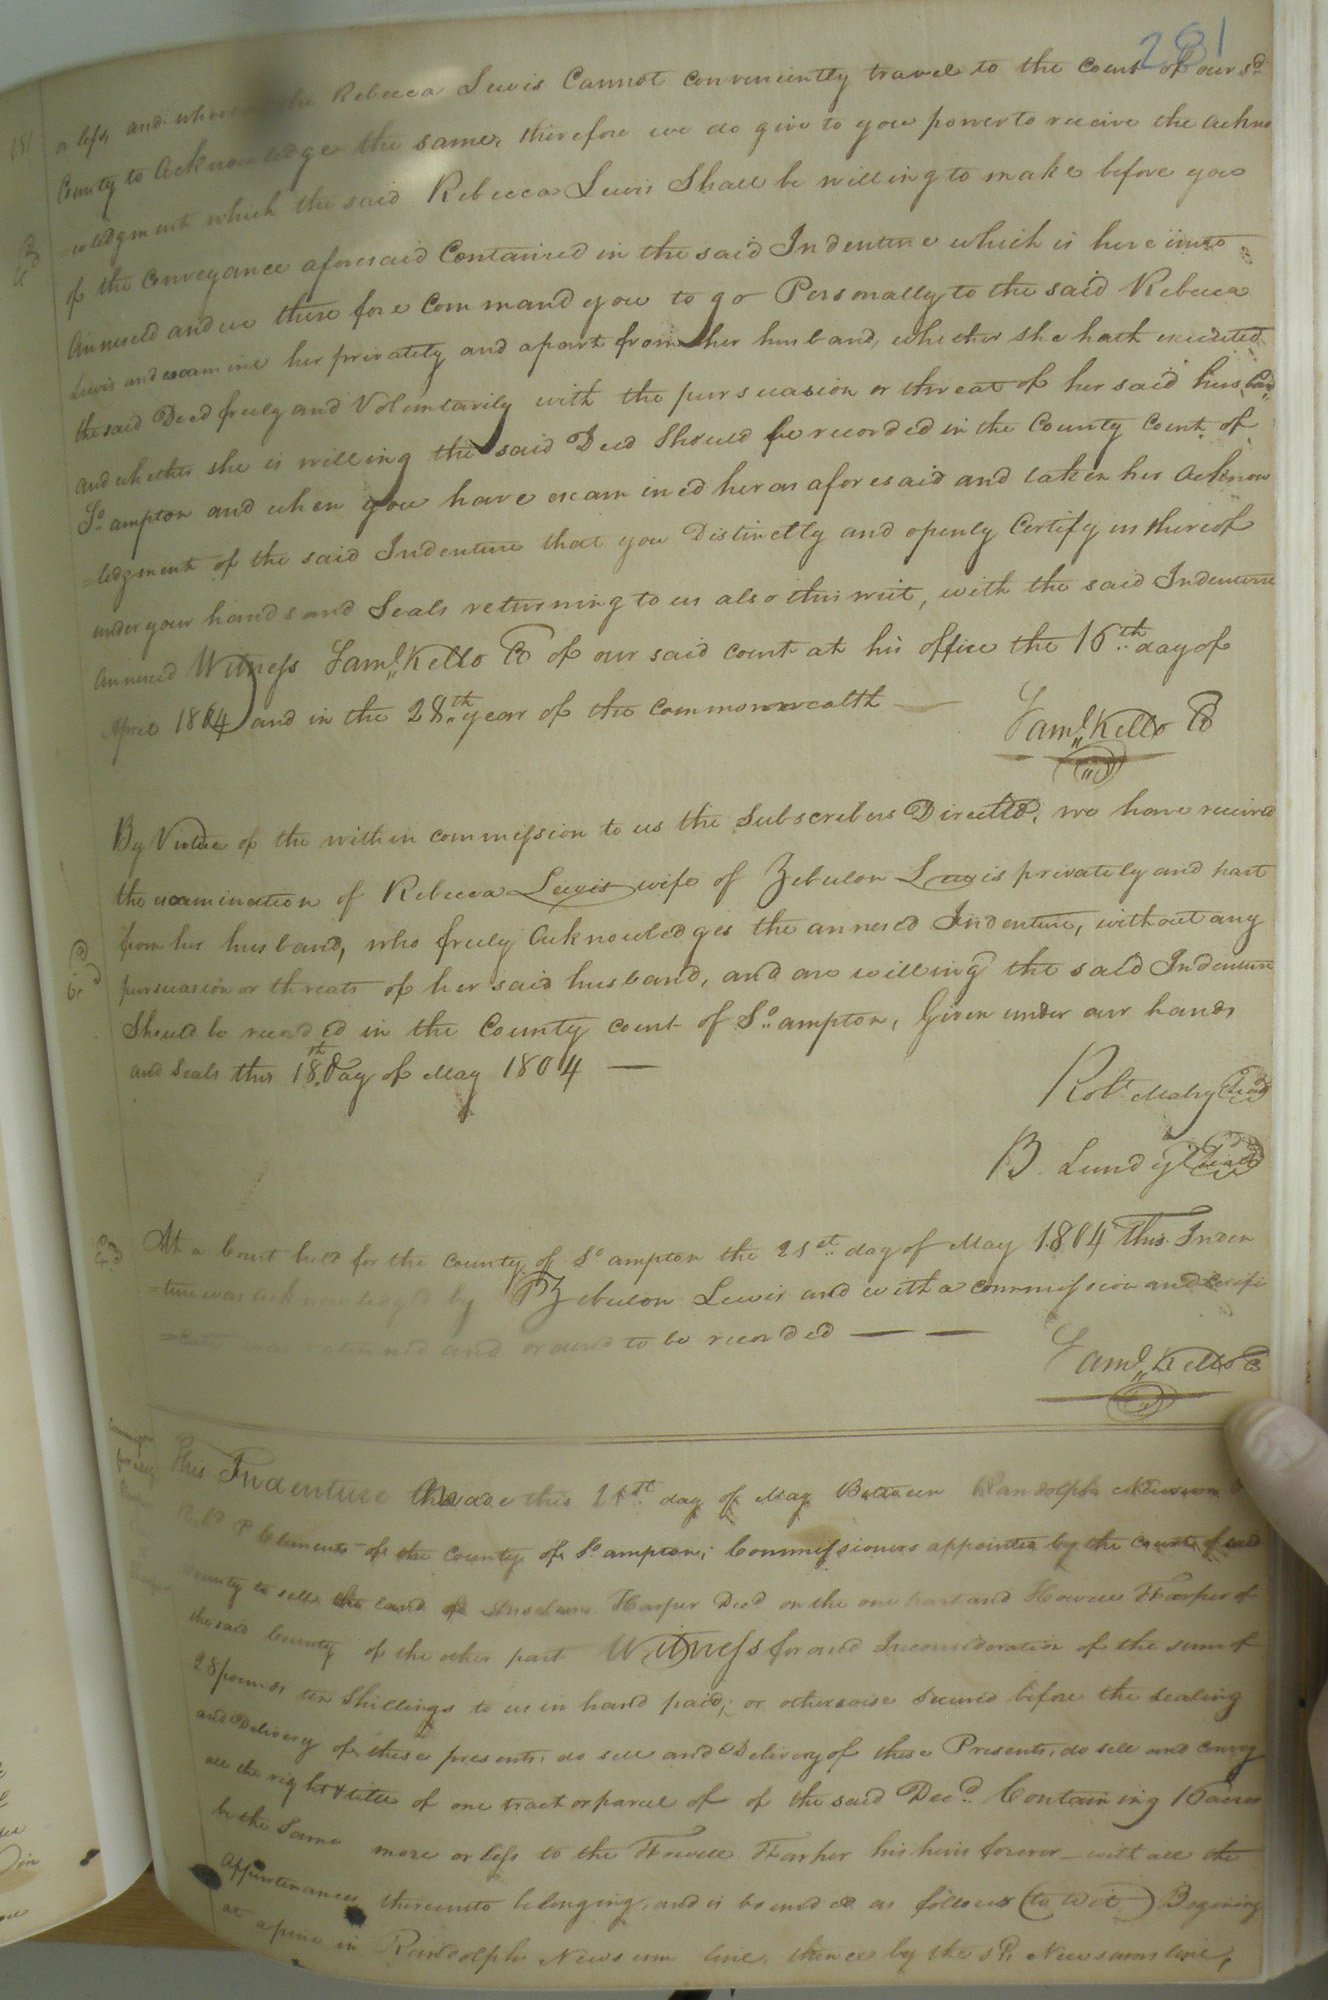 281
or less, and where the Rebecca Lewis Cannot conveniently travel to the Court of our sd
County to acknowledge the same, therefore we do give to you power to receive the ackno
=wledgment which the said Rebecca Lewis Shall be willing to make before you
of the Conveyance aforesaid Contained in the said Indenture which is here unto
Annexed and we there fore Command you to go Personally to the said Rebecca
Lewis and examine her privately and apart from her husband, whether she hath executed
the said Deed freely and Voluntarily with the pursuasion or threat of her said husband
and whether she is willing the said Deed Should be recorded in the County Court of
So. ampton and when you have examined her as aforesaid and taken her Acknow
=ledgment of the said Indenture that you Distinctly and openly Certify us thereof
under your hands and Seals returning to us also this writ, with the said Indenture
annexed Witness Saml. Kello CC of our said court at his office the 16th day of
April 1804 and in the 28th year of the commonwealth
Saml. Kello CC
By Virtue of the within commission to us the Subscribers Directed, we have received
the examination of Rebecca Lewis wife of Zebulon Lewis privately and part
from her husband, who freely Acknowledges the annexed Indenture, without any
pursuasion or threats of her said husband, and are willing the said Indenture
Should be recorded in the County court of So. ampton, Given under our hands
and Seals this 18th. Day of May 1804 —
Robt. Mabry Seal
B Lundy Seal
At a Court held for the County of So ampton the 21st. day of May 1804 This Inden
=ture was acknowledged by Zebulon Lewis and with a commission and certifi
=cate was returned and ordered to be recorded — —
Saml. Kello CC
This Indenture Made this 21st. day of May Between Randolph Newsum &
P Clements of the County of So ampton; Commissioners appointed by the Court of said
County to sell the land of Anselm Harper Decd on the one part and Howell Harper of
the said County of the other part Witness for and Inconsideration of the sum of
28 pounds ten Shillings to us in hand paid, or otherwise Secured before the Sealing
and Delivery of these presents, do sell and Delivery of these Presents, do sell and convey
all the right & title of one tract or parcel of of the said Decd. Containing 16 acres
be the Same more or less to the Howell Harper his heirs forever — with all the
Appurtenances thereunto belonging, and is bounded as follows (to Wit) Begining
at a pine in Randolph Newsum line, thence by the sd. Newsums line,